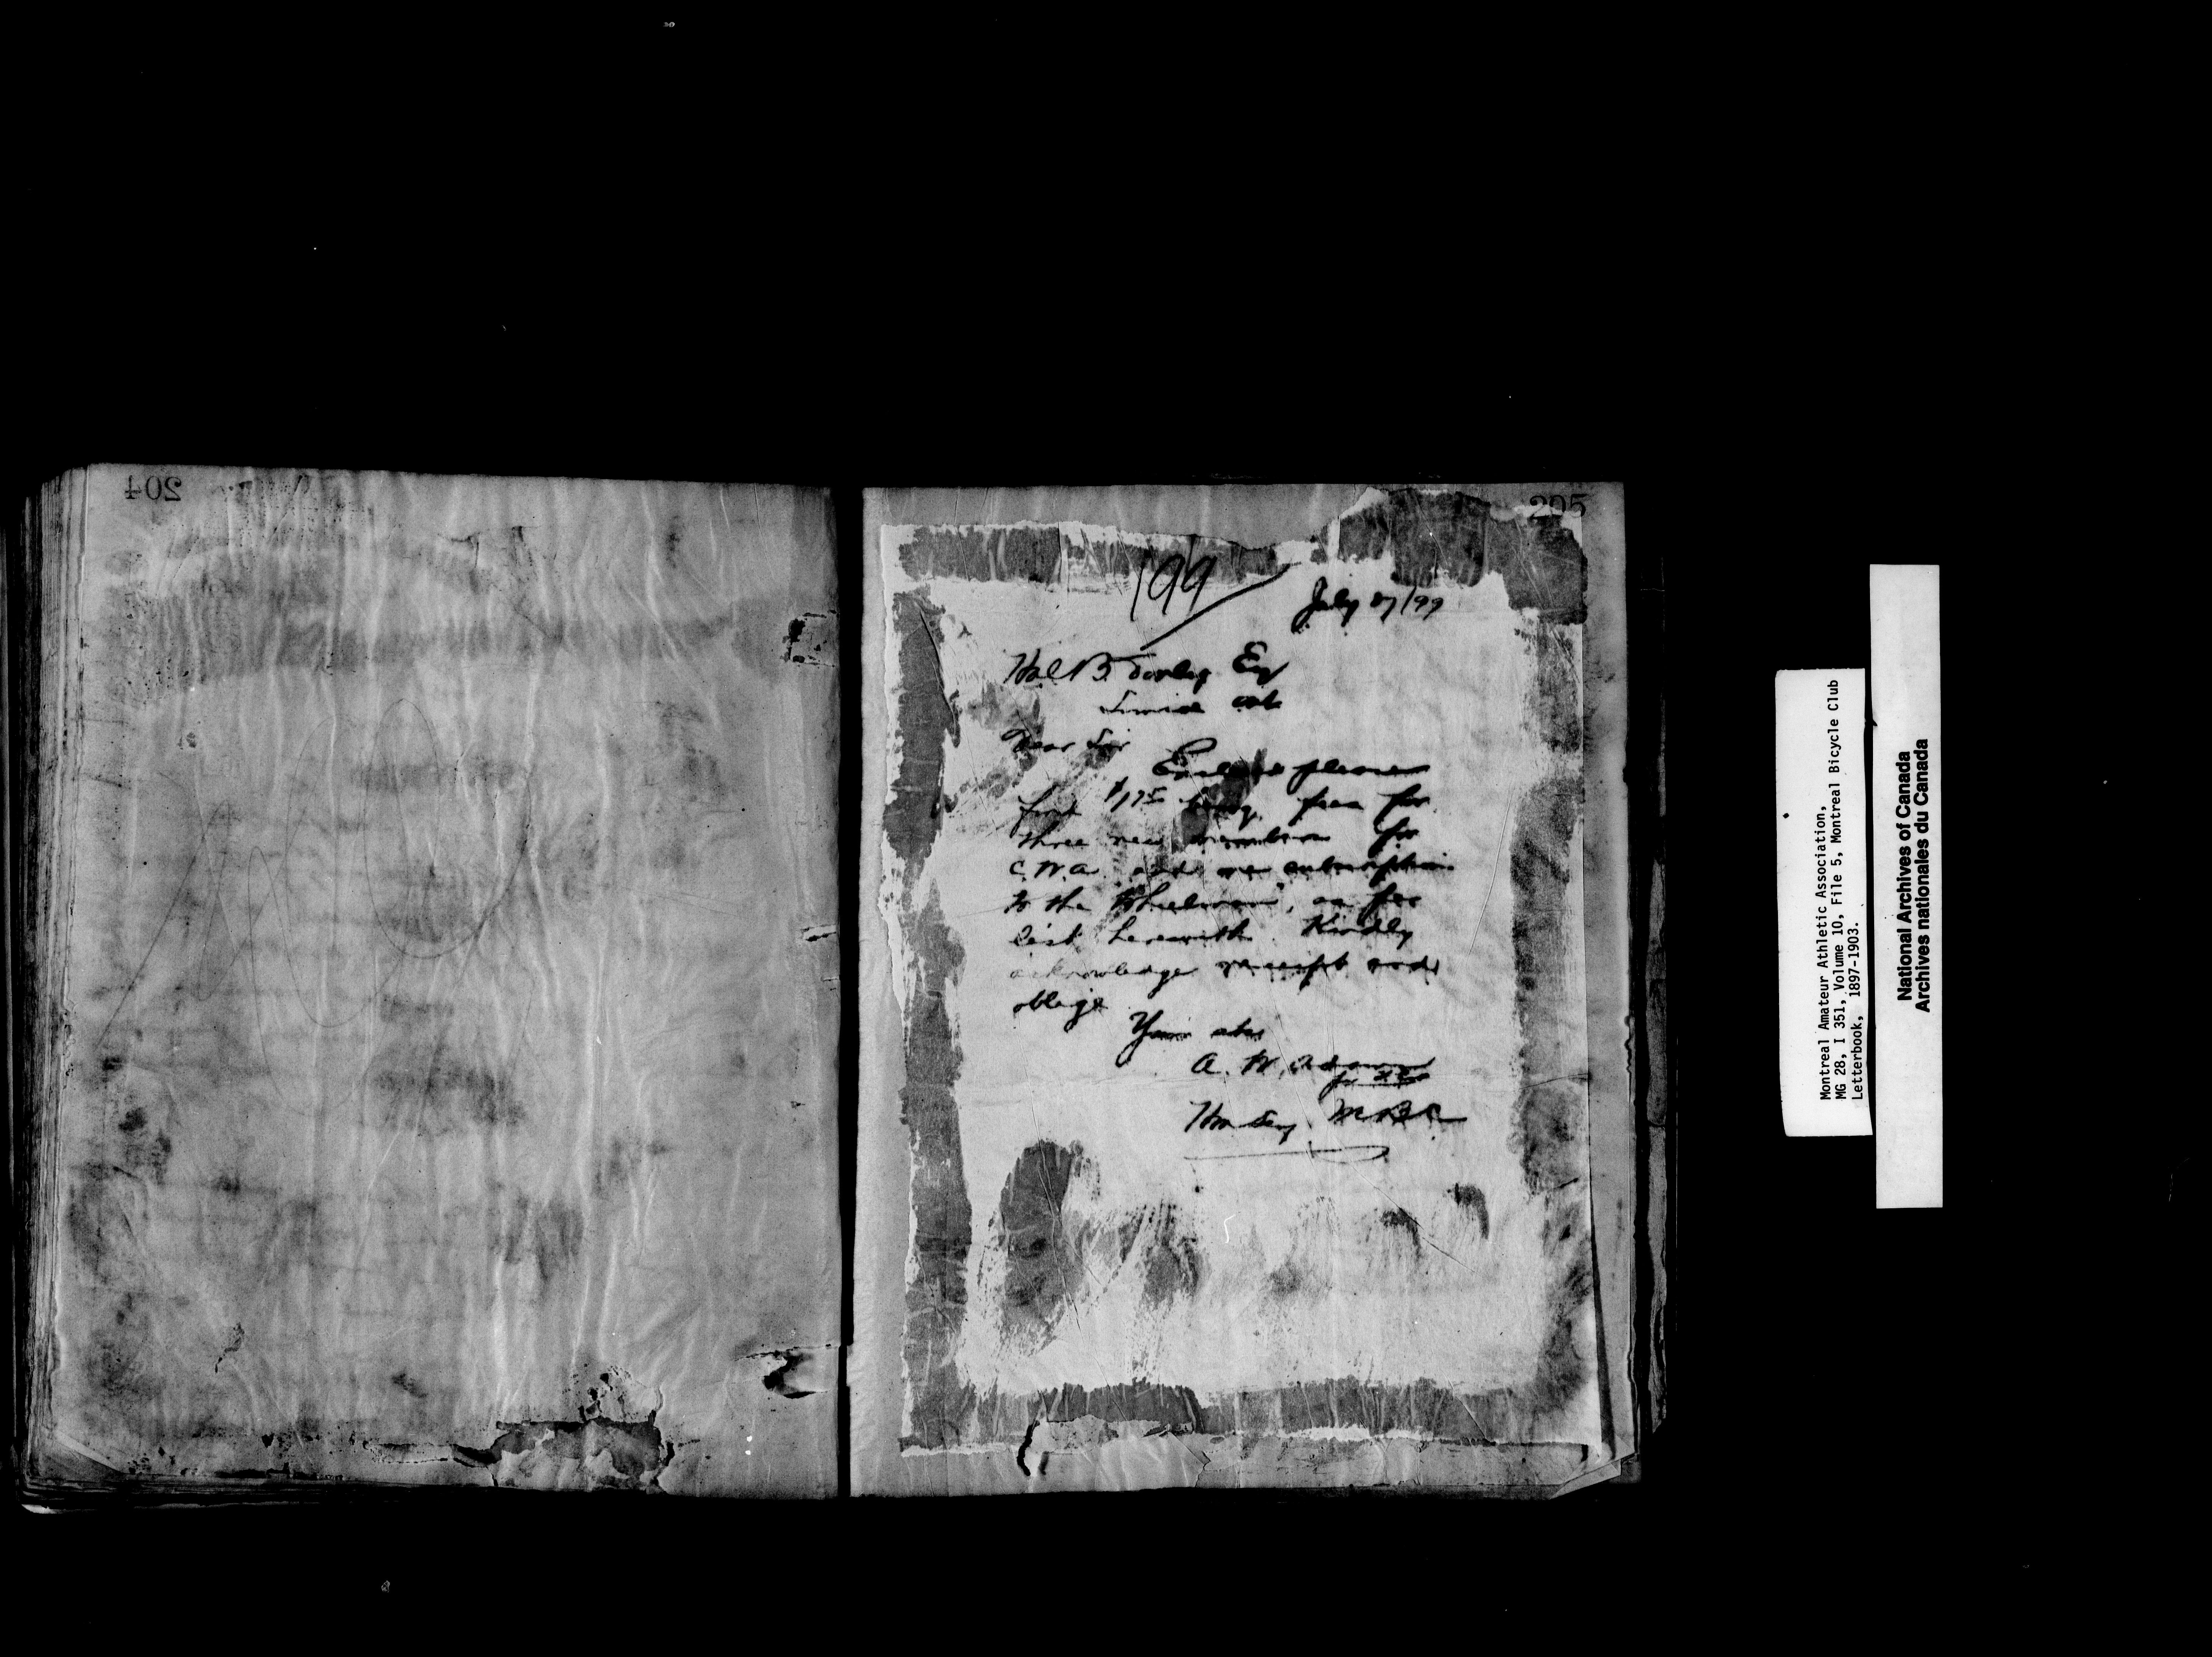 204
205
199
July 27/99
Hal B. Donly Esq
Simcoe Ont
Dear Sir
Enclosed please
find $1.75 being fees for
three new members for
C.W.A. and one subscription
to the "Wheelman", as per
list herewith. Kindly
acknowledge receipt and
oblige
Yours etc
A. W. Adams
Hon Secy. M.B.C.
Montreal Amateur Athletic Association,
MG 28, I 351, Volume 10, File 5, Montreal Bicycle Club
Letterbook, 1897-1903.
National Archives of Canada
Archives nationales du Canada